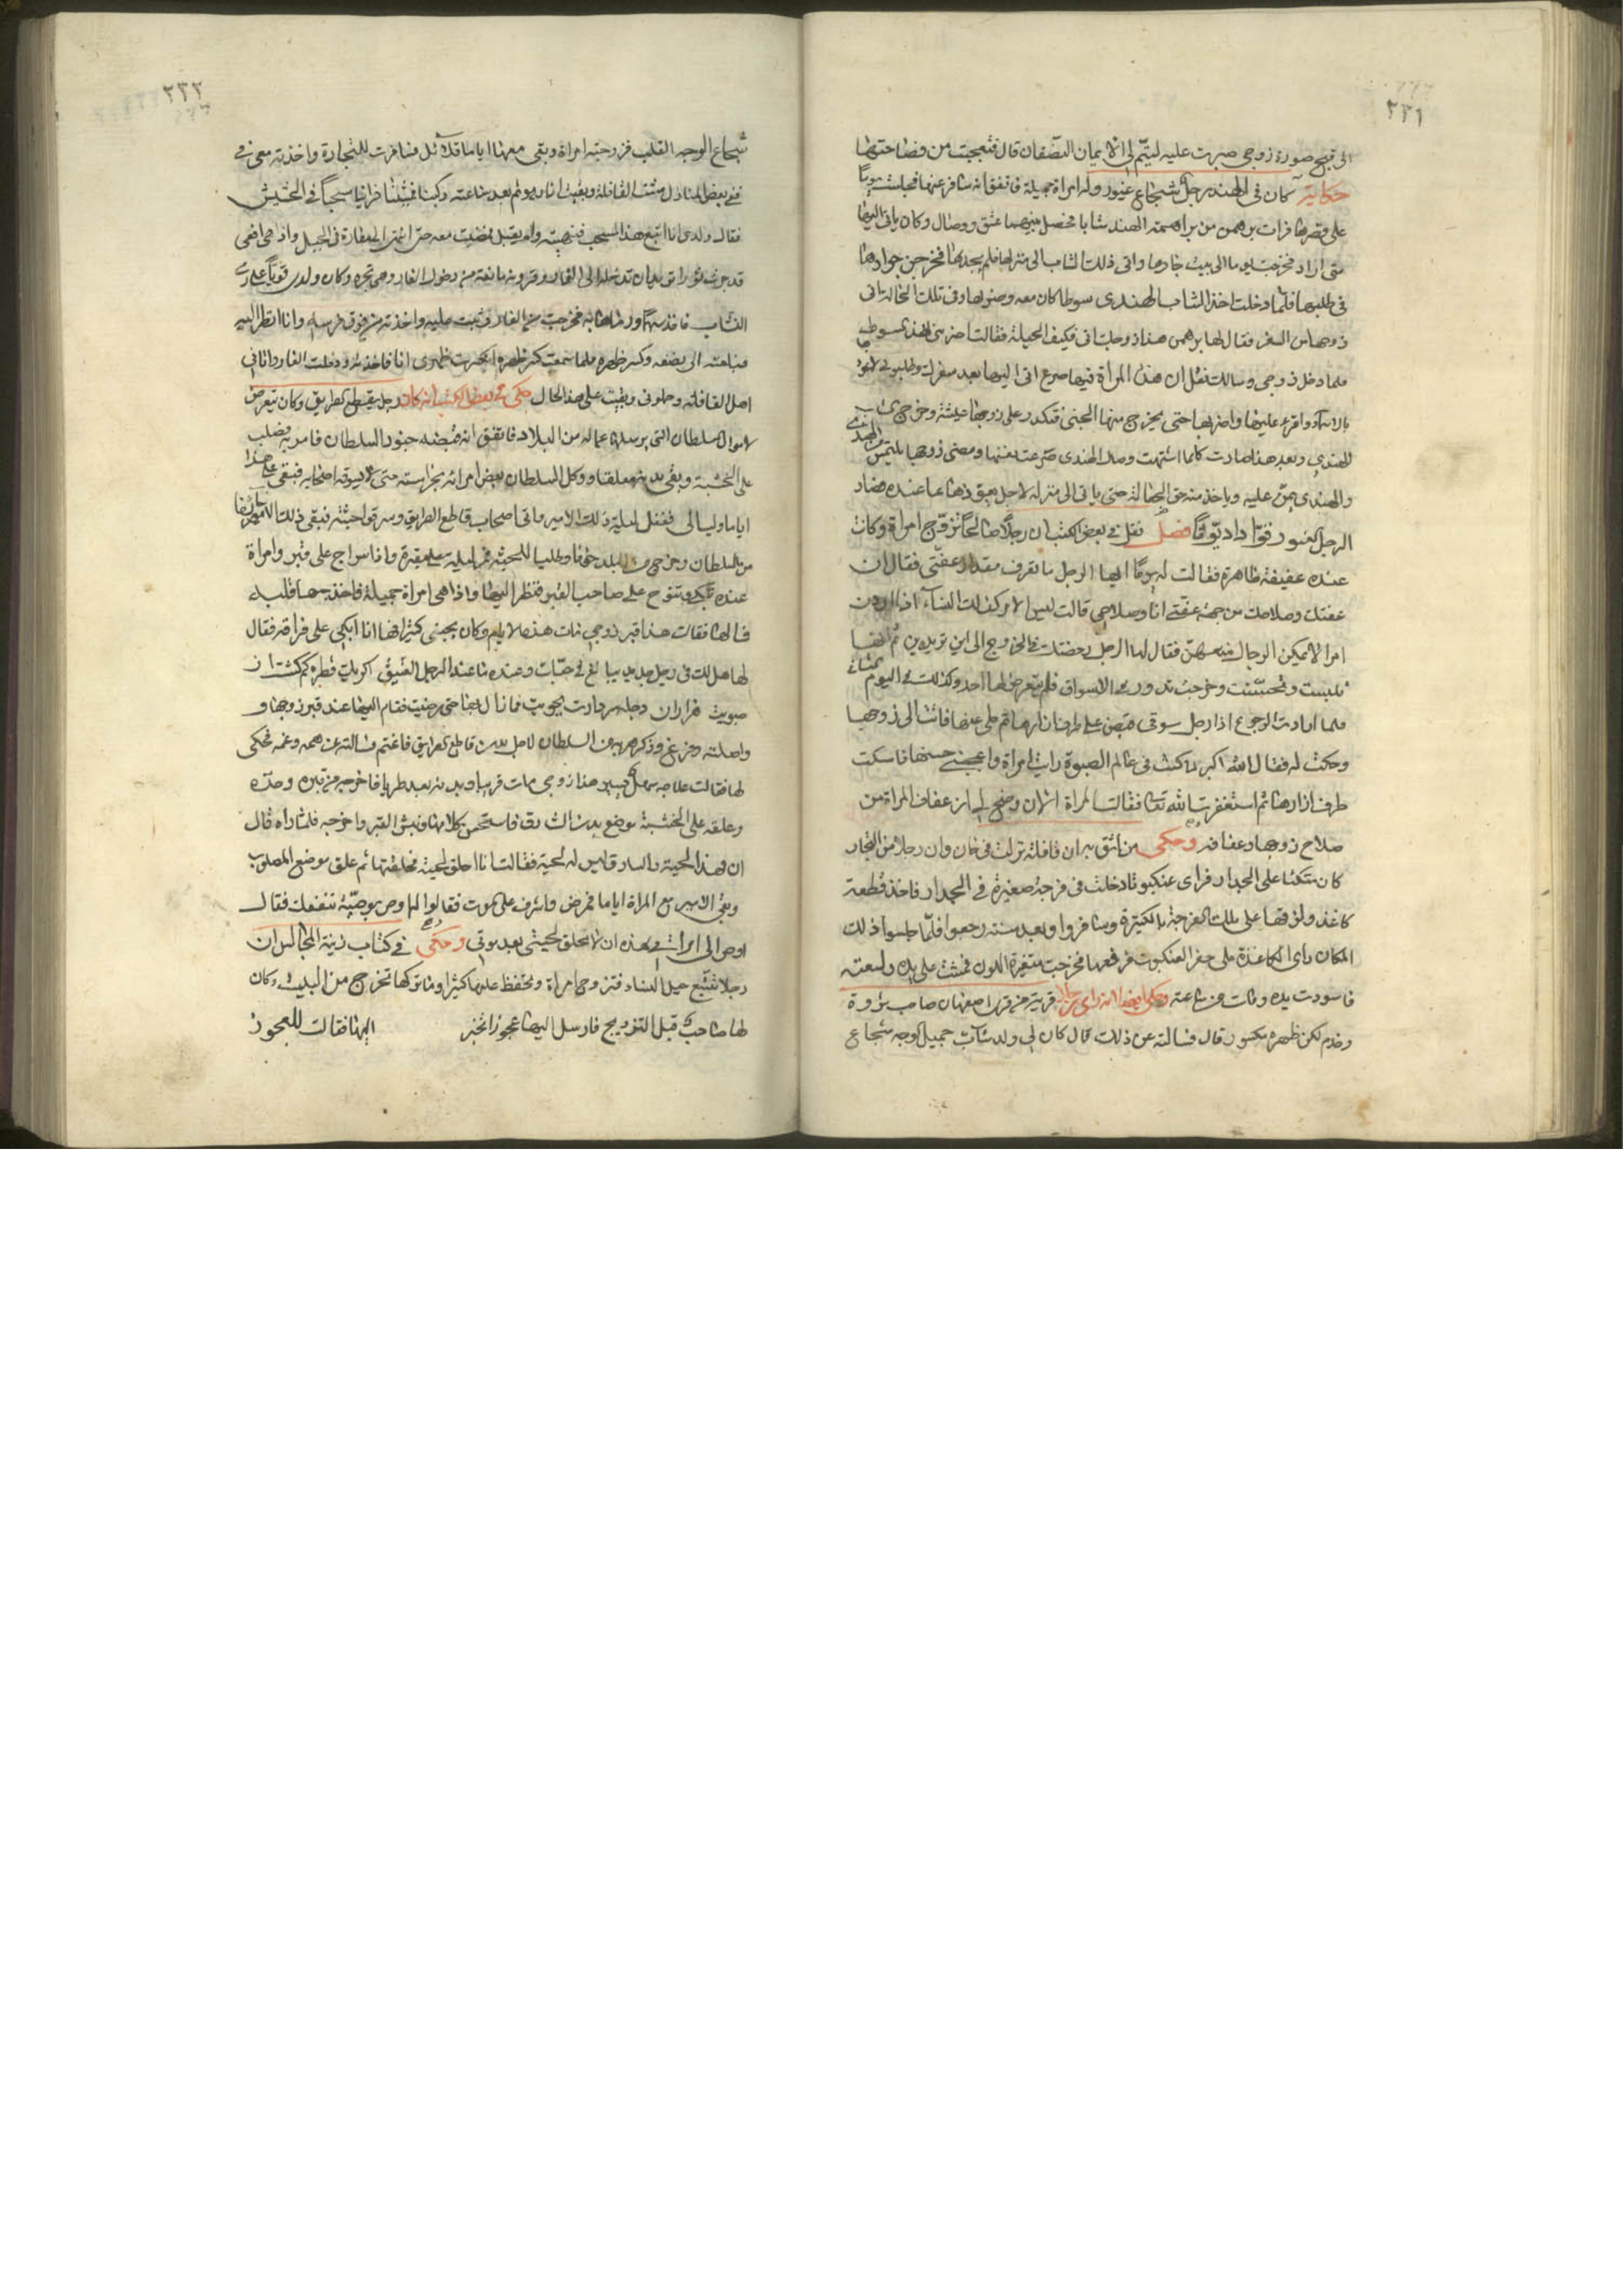 ٢٣١
الى قبح صورة زوجي صبرت عليه ليتم لي الايمان النصفان قال فتعجبت من فصاحتها
حكاية كان في الهند رجل شجاع غيور وله امراة جميلة فاتفق انه سافر عنها فجلست يوما
على قصرها فرات برهمن من براهمة الهند شابا فحصل بينهما عشق ووصال وكان ياتي اليها
متى اراد فخرجت يوما الى بيت جارها واتى ذلك الشاب الى منزلها فلم يجدها فخرج من جوارها
في طلبها فلما دخلت اخذ الشاب الهندي سوطا كان معه وضربها وفي تلك الحالة اتى
زوجها من السفر فقال لها برهمن هذا زوجك اتى فكيف الحيلة فقالت اضربني بهذا السوط
فلما دخل زوجي وسالك فقل ان هذه المراة فيها صرع اتى اليها بعد سفرك وطلبوني لاعوذ
بالاسماء واقرء عليها واضربها حتى يخرج منها الجني فتكدر على زوجها عيشه وخرج
للهندي وبعد هذا صارت كلما اشتهت وصال الهندي صرعت نفسها ومضى زوجها يلتمس من الهندي
والهندي يمن عليه وياخذ منه حق الجعالة حتى ياتي الى منزله لاجل عند فصار
الرجل الغيور قوادا ديوثا فصل نقل في بعض الكتب ان رجلا صالحا تزوج امراة وكانت
عنده عفيفة طاهرة فقالت له يوما ايها الرجل ما تعرف مقدار عفتي فقال ان
عفتك وصلاحك من جهة عفتي انا وصلاحي قالت ليس الامر كذلك النساء اذا اردن
امرا لا يمكن الرجال منعهن فقال لها الرجل رخصتك في الخروج الى اين تريدين ثم انها
لبست وتحسنت وخرجت تدور في الاسواق فلم يتعرض لها احد وكذلك في اليوم الثاني
فلما ارادت الرجوع اذا رجل سوقي قبض على طرف ازارها ثم خلى عنها فاتت الى زوجها
وحكت له فقال الله اكبر كنت في عالم الصبوة رايت امراة واعجبني حسنها فامسكت
طرف ازارها ثم استغفرت الله تعالى فقالت المراة الان وضح لي ان عفاف المراة من
صلاح زوجها وعفافه وحكى من اثق به ان قافلة نزلت في خان وان رجلا من التجار
كان متكئا على الجدار فراى عنكبوتا دخلت في فرجة صغيرة في الجدار فاخذ قطعة
كاغذ ولزقها على تلك الفرجة بالكتيرة وسافروا وبعد سنة رجعوا فلما جلسوا ذلك
المكان راى الكاغذة على حفر العنكبوت فرفعها فخرجت متغيرة اللون فمشت على يده ولسعته
فاسودت يده ومات من ساعته وحكي ايضا انه راى رجلا قرية من قرى اصفهان صاحب ثروة
وخدم لكن ظهره مكسور قال فسالته عن ذلك قال كان لي ولد شاب جميل الوجه شجاع
٢٣٢
شجاع الوجه القلب فزوجته امراة وبقي معها اياما قلائل فسافرت للتجارة واخذته معي في
ففي بعض المنازل مشت القافلة وبقيت انا وهو ثم بعد ساعة ركبنا فمشينا فراينا سحبا في الحشيش
فقال ولدي انا اتبع هذا المسحب فنهيته ولم يقبل فمضيت معه حتى انتهى الى مغارة في الجبل واذا هي افعى
قد جرت ثورا تريد ان تدخله الى الغار وقرونه مانعة من دخول الغار وهي تجره وكان ولدي قويا على رمي
النشاب فاخذ سهما ورماها به فخرجت من الغار وثبت عليه واخذته من فوق فرسه وانا انظر اليه
فبلعته الى نصفه وكسر ظهره فلما سمعت كسر ظهره انكسرت ظهري انا فاخذته ودخلت الغار واتاني
اهل القافلة وحملوني وبقيت على هذا الحال حكي في بعض الكتب انه كان رجل يقطع الطريق وكان يتعرض
لاموال السلطان التي يرسلها عماله من البلاد فاتفق انه قبضه جنود السلطان فامر به فصلب
على الخشبة وبقي بدنه معلقا ووكل السلطان بعض امرائه بحراسته حتى لا يسرقه اصحابه فبقي على هذا
اياما وليالي فغفل ليلة ذلك الامير واتى اصحاب قاطع الطريق وسرقوا جثته فبقي ذلك الامير خائفا
من السلطان وخرج من البلد خوفا وطلبا للجثة فمر ليلة على مقبرة واذا سراج على قبر وامراة
عنده تبكي وتنوح على صاحب القبر فنظر اليها واذا هي امراة جميلة فاخذت قلبه
فسالها فقالت هذا قبر زوجي مات هذه الايام وكان يحبني كثيرا فها انا ابكي على فراقه فقال
لها هل لك في رجل جديد يبالغ في حبك وعنده ما عند الرجل العتيق اكر يك قطره كم كشت از
صبويت هزاران دجله در جويت فما زال بها حتى رضيت فقام اليها عند قبر زوجها و
واصلته وفرغ وذكر هربه من السلطان لاجل بدن قاطع الطريق فاغتم فسالته عن همه وغمه فحكى
لها فقالت علاجه سهل يسير هذا زوجي مات قريبا وبدنه بعد طريا فاخرجه من قبره وخذه
وعلقه على الخشبة موضع بدن السارق فاستحسن كلامها ونبش القبر واخرجه فلما راه قال
ان لهذا لحية والسارق ليس له لحية فقالت انا احلق لحيته فحلقتها ثم علق موضع المصلوب
وبقي الامير مع المراة اياما فمرض واشرف على الموت فقالوا له اوص بوصية تنفعك فقال
اوصي الى امراتي هذه ان لا تحلق لحيتي بعد موتي وحكي في كتاب زينة المجالس ان
رجلا تتبع حيل النساء فتزوج امراة وتحفظ عليها كثيرا وما تركها تخرج من البيت وكان
لها صاحب قبل التزويج فارسل اليها عجوزا تخبر اليها فقالت للعجوز